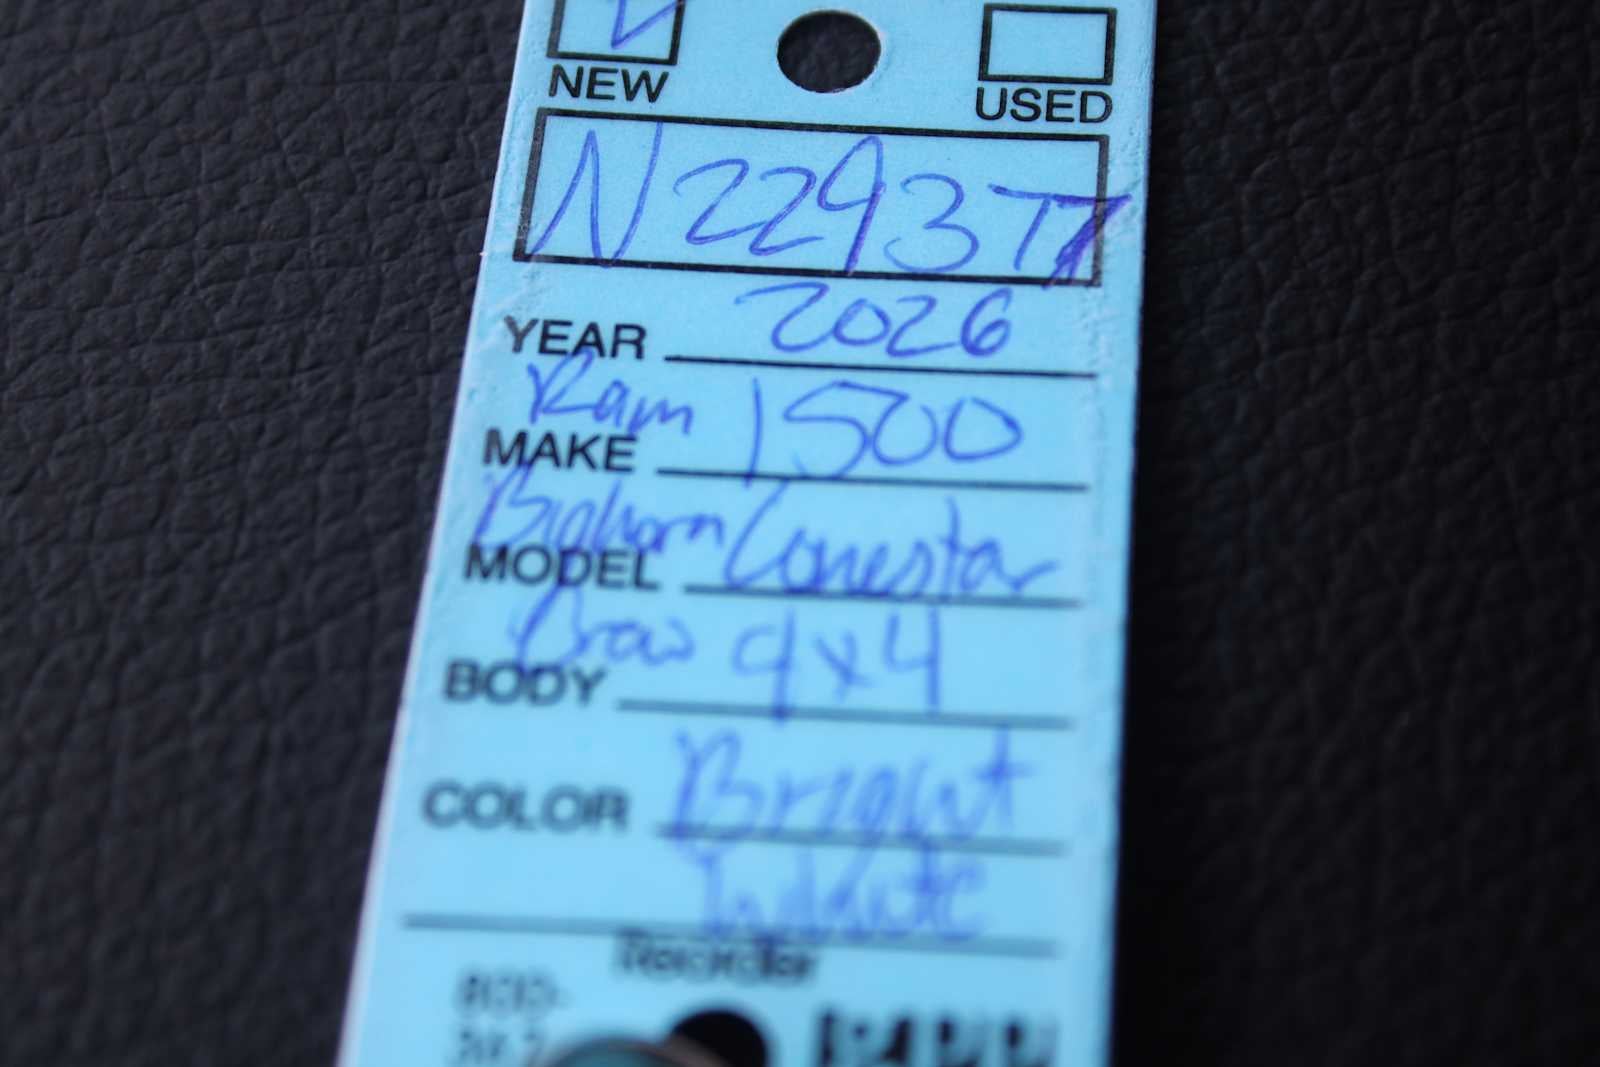 NEW USED
N22937T
YEAR 2026
MAKE Ram 1500
MODEL Bighorn Lonestar
BODY Crew 4x4
COLOR Bright
White
Reorder
800-